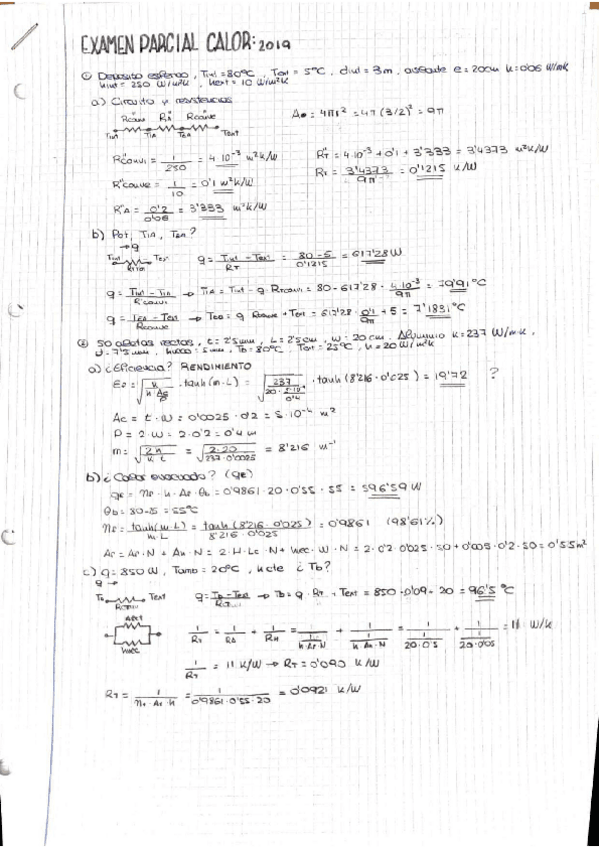 EXAMEN PARCIAL CALOR: 2019
① Deposito esferico, Tint = 80ºC, Text = 5ºC, dint = 3m, aislante e = 20cm k = 0'06 W/mK
hint = 250 W/m²K, hext = 10 W/m²K
a) Circuito y resistencias
Rconvi RA Rconve
Tint TiA TeA Text
A₀ = 4πr² = 4π(3/2)² = 9π
R"convi = 1/250 = 4·10⁻³ m²K/W
R"T = 4·10⁻³ + 0'1 + 3'333 = 3'4373 m²K/W
R"conve = 1/10 = 0'1 m²K/W
RT = 3'4373/9π = 0'1215 K/W
R"A = 0'2/0'06 = 3'333 m²K/W
b) Pot, TiA, TeA?
→q
Tint Text
q = (Tint - Text)/RT = (80 - 5)/0'1215 = 617'28 W
q = (Tint - TiA)/Rconvi → TiA = Tint - q·Rconvi = 80 - 617'28 · 4·10⁻³/9π = 79'91 ºC
q = (TeA - Text)/Rconve → Te0 = q Rconve + Text = 617'28 · 0'1/9π + 5 = 7'1831 ºC
② 50 aletas rectas, t = 2'5mm, L = 25mm, w = 20cm. Aluminio k = 237 W/m·K,
hueco = 5mm, Tb = 80ºC, Text = 25ºC, h = 20 W/m²K
a) ¿Eficiencia? RENDIMIENTO
· tanh(m·L) = · tanh(8'216·0'025) = 19'72 ?
Ac = t·w = 0'0025 · 0'2 = 5·10⁻⁴ m²
P = 2·w = 2·0'2 = 0'4 m
m = √(2h/k·t) = √(2·20/237·0'0025) = 8'216 m⁻¹
b) ¿Calor evacuado? (qe)
qe = ηe · h · Ae · θb = 0'9861 · 20 · 0'55 · 55 = 596'59 W
θb = 80-25 = 55ºC
ηe = tanh(m·L)/m·L = tanh(8'216·0'025)/8'216·0'025 = 0'9861 (98'61%)
0'025 · 50 + 0'005 · 0'2 · 50 = 0'55 m²
c) q = 850W, Tamb = 20ºC, h cte ¿Tb?
q →
Tb Text
q = → Tb = q · RT + Text = 850 · 0'09 + 20 = 96'5 ºC
1/RT = 11 K/W → RT = 0'090 K/W
= 1/(0'9861·0'55·20) = 0'0921 K/W